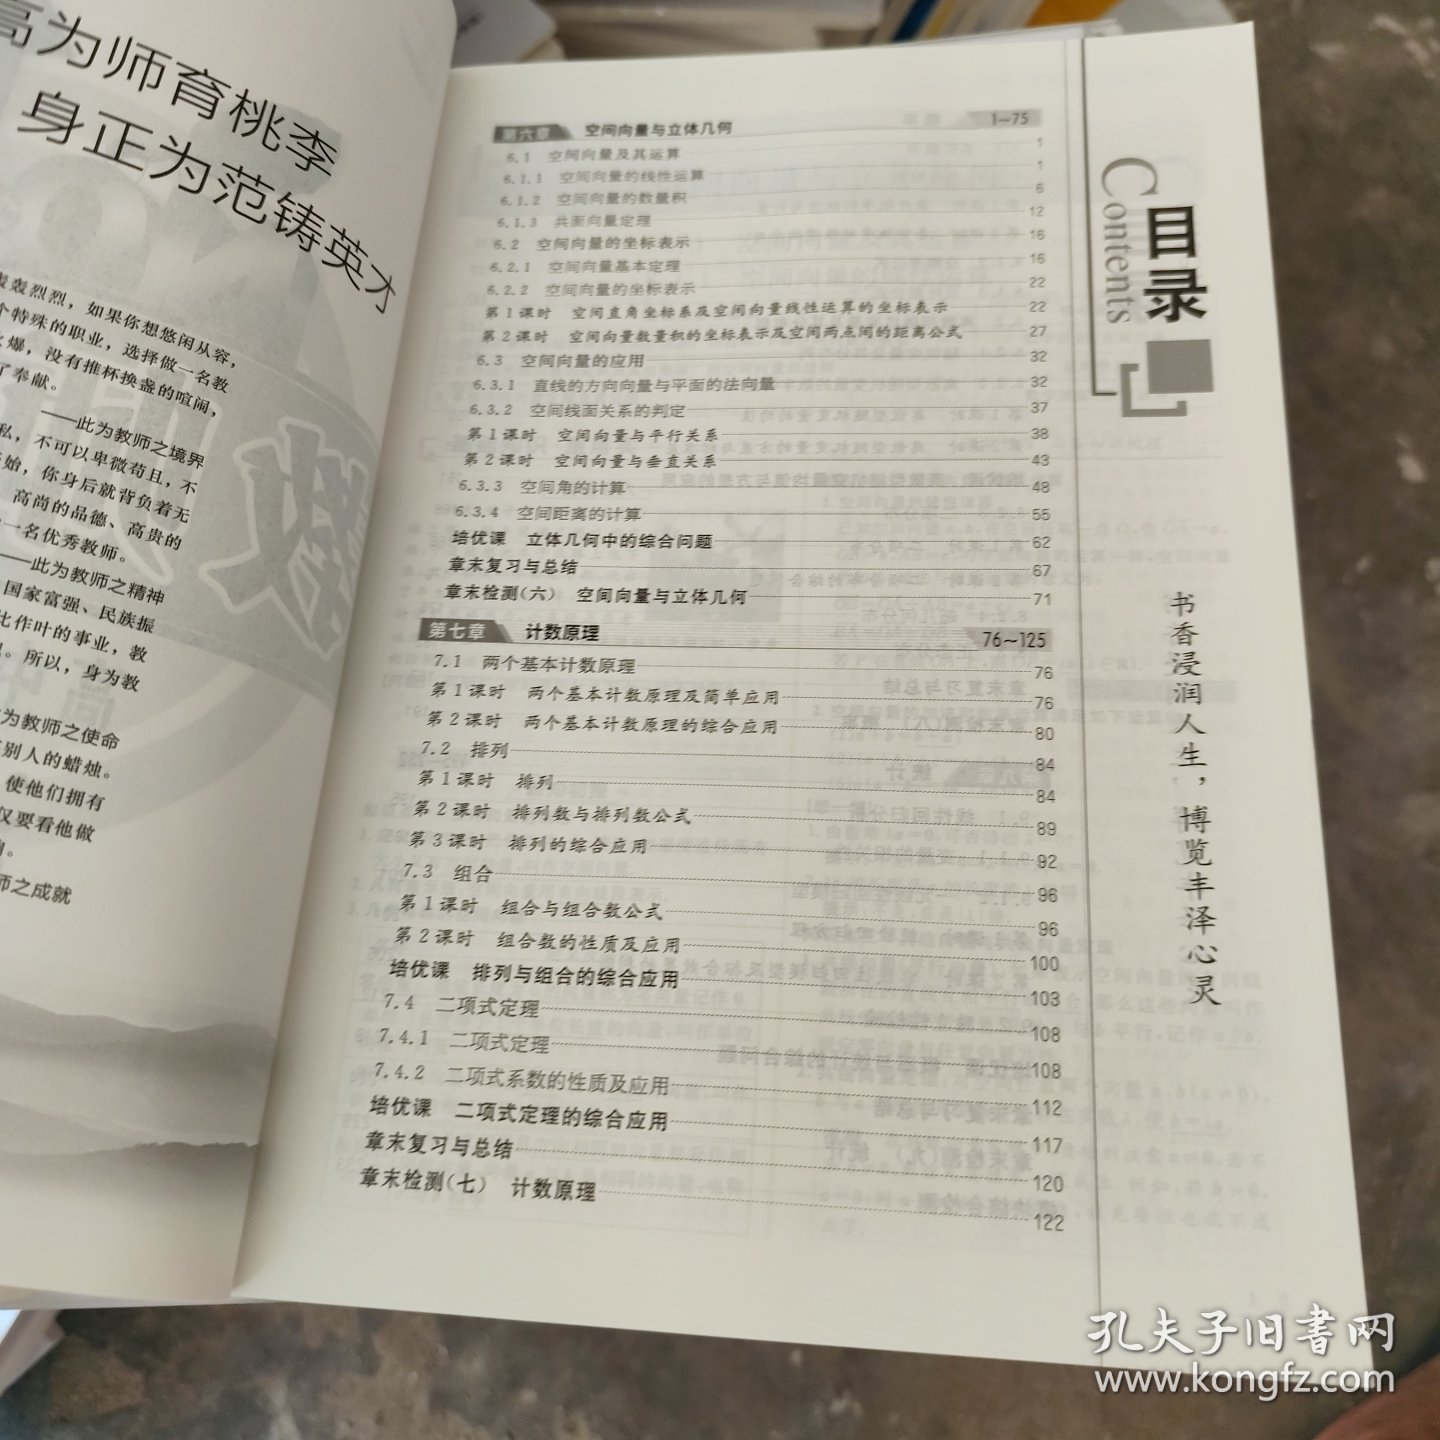 高为师育桃李
身正为范铸英才
轰轰烈烈，如果你想悠闲从容，
个特殊的职业，选择做一名教
火爆，没有推杯换盏的喧闹，
了奉献。
——此为教师之境界
私，不可以卑微苟且，不
开始，你身后就背负着无
高尚的品德、高贵的
一名优秀教师。
——此为教师之精神
国家富强、民族振
比作叶的事业，教
所以，身为教
为教师之使命
别人的蜡烛。
使他们拥有
仅要看他做
师之成就
目录
Contents
第六章 空间向量与立体几何 1~75
6.1 空间向量及其运算 1
6.1.1 空间向量的线性运算 1
6.1.2 空间向量的数量积 6
6.1.3 共面向量定理 12
6.2 空间向量的坐标表示 16
6.2.1 空间向量基本定理 16
6.2.2 空间向量的坐标表示 22
第1课时 空间直角坐标系及空间向量线性运算的坐标表示 22
第2课时 空间向量数量积的坐标表示及空间两点间的距离公式 27
6.3 空间向量的应用 32
6.3.1 直线的方向向量与平面的法向量 32
6.3.2 空间线面关系的判定 37
第1课时 空间向量与平行关系 38
第2课时 空间向量与垂直关系 43
6.3.3 空间角的计算 48
6.3.4 空间距离的计算 55
培优课 立体几何中的综合问题 62
章末复习与总结 67
章末检测(六) 空间向量与立体几何 71
第七章 计数原理 76~125
7.1 两个基本计数原理 76
第1课时 两个基本计数原理及简单应用 76
第2课时 两个基本计数原理的综合应用 80
7.2 排列 84
第1课时 排列 84
第2课时 排列数与排列数公式 89
第3课时 排列的综合应用 92
7.3 组合 96
第1课时 组合与组合数公式 96
第2课时 组合数的性质及应用 100
培优课 排列与组合的综合应用 103
7.4 二项式定理 108
7.4.1 二项式定理 108
7.4.2 二项式系数的性质及应用 112
培优课 二项式定理的综合应用 117
章末复习与总结 120
章末检测(七) 计数原理 122
书香浸润人生，博览丰泽心灵
孔夫子旧书网
www.kongfz.com